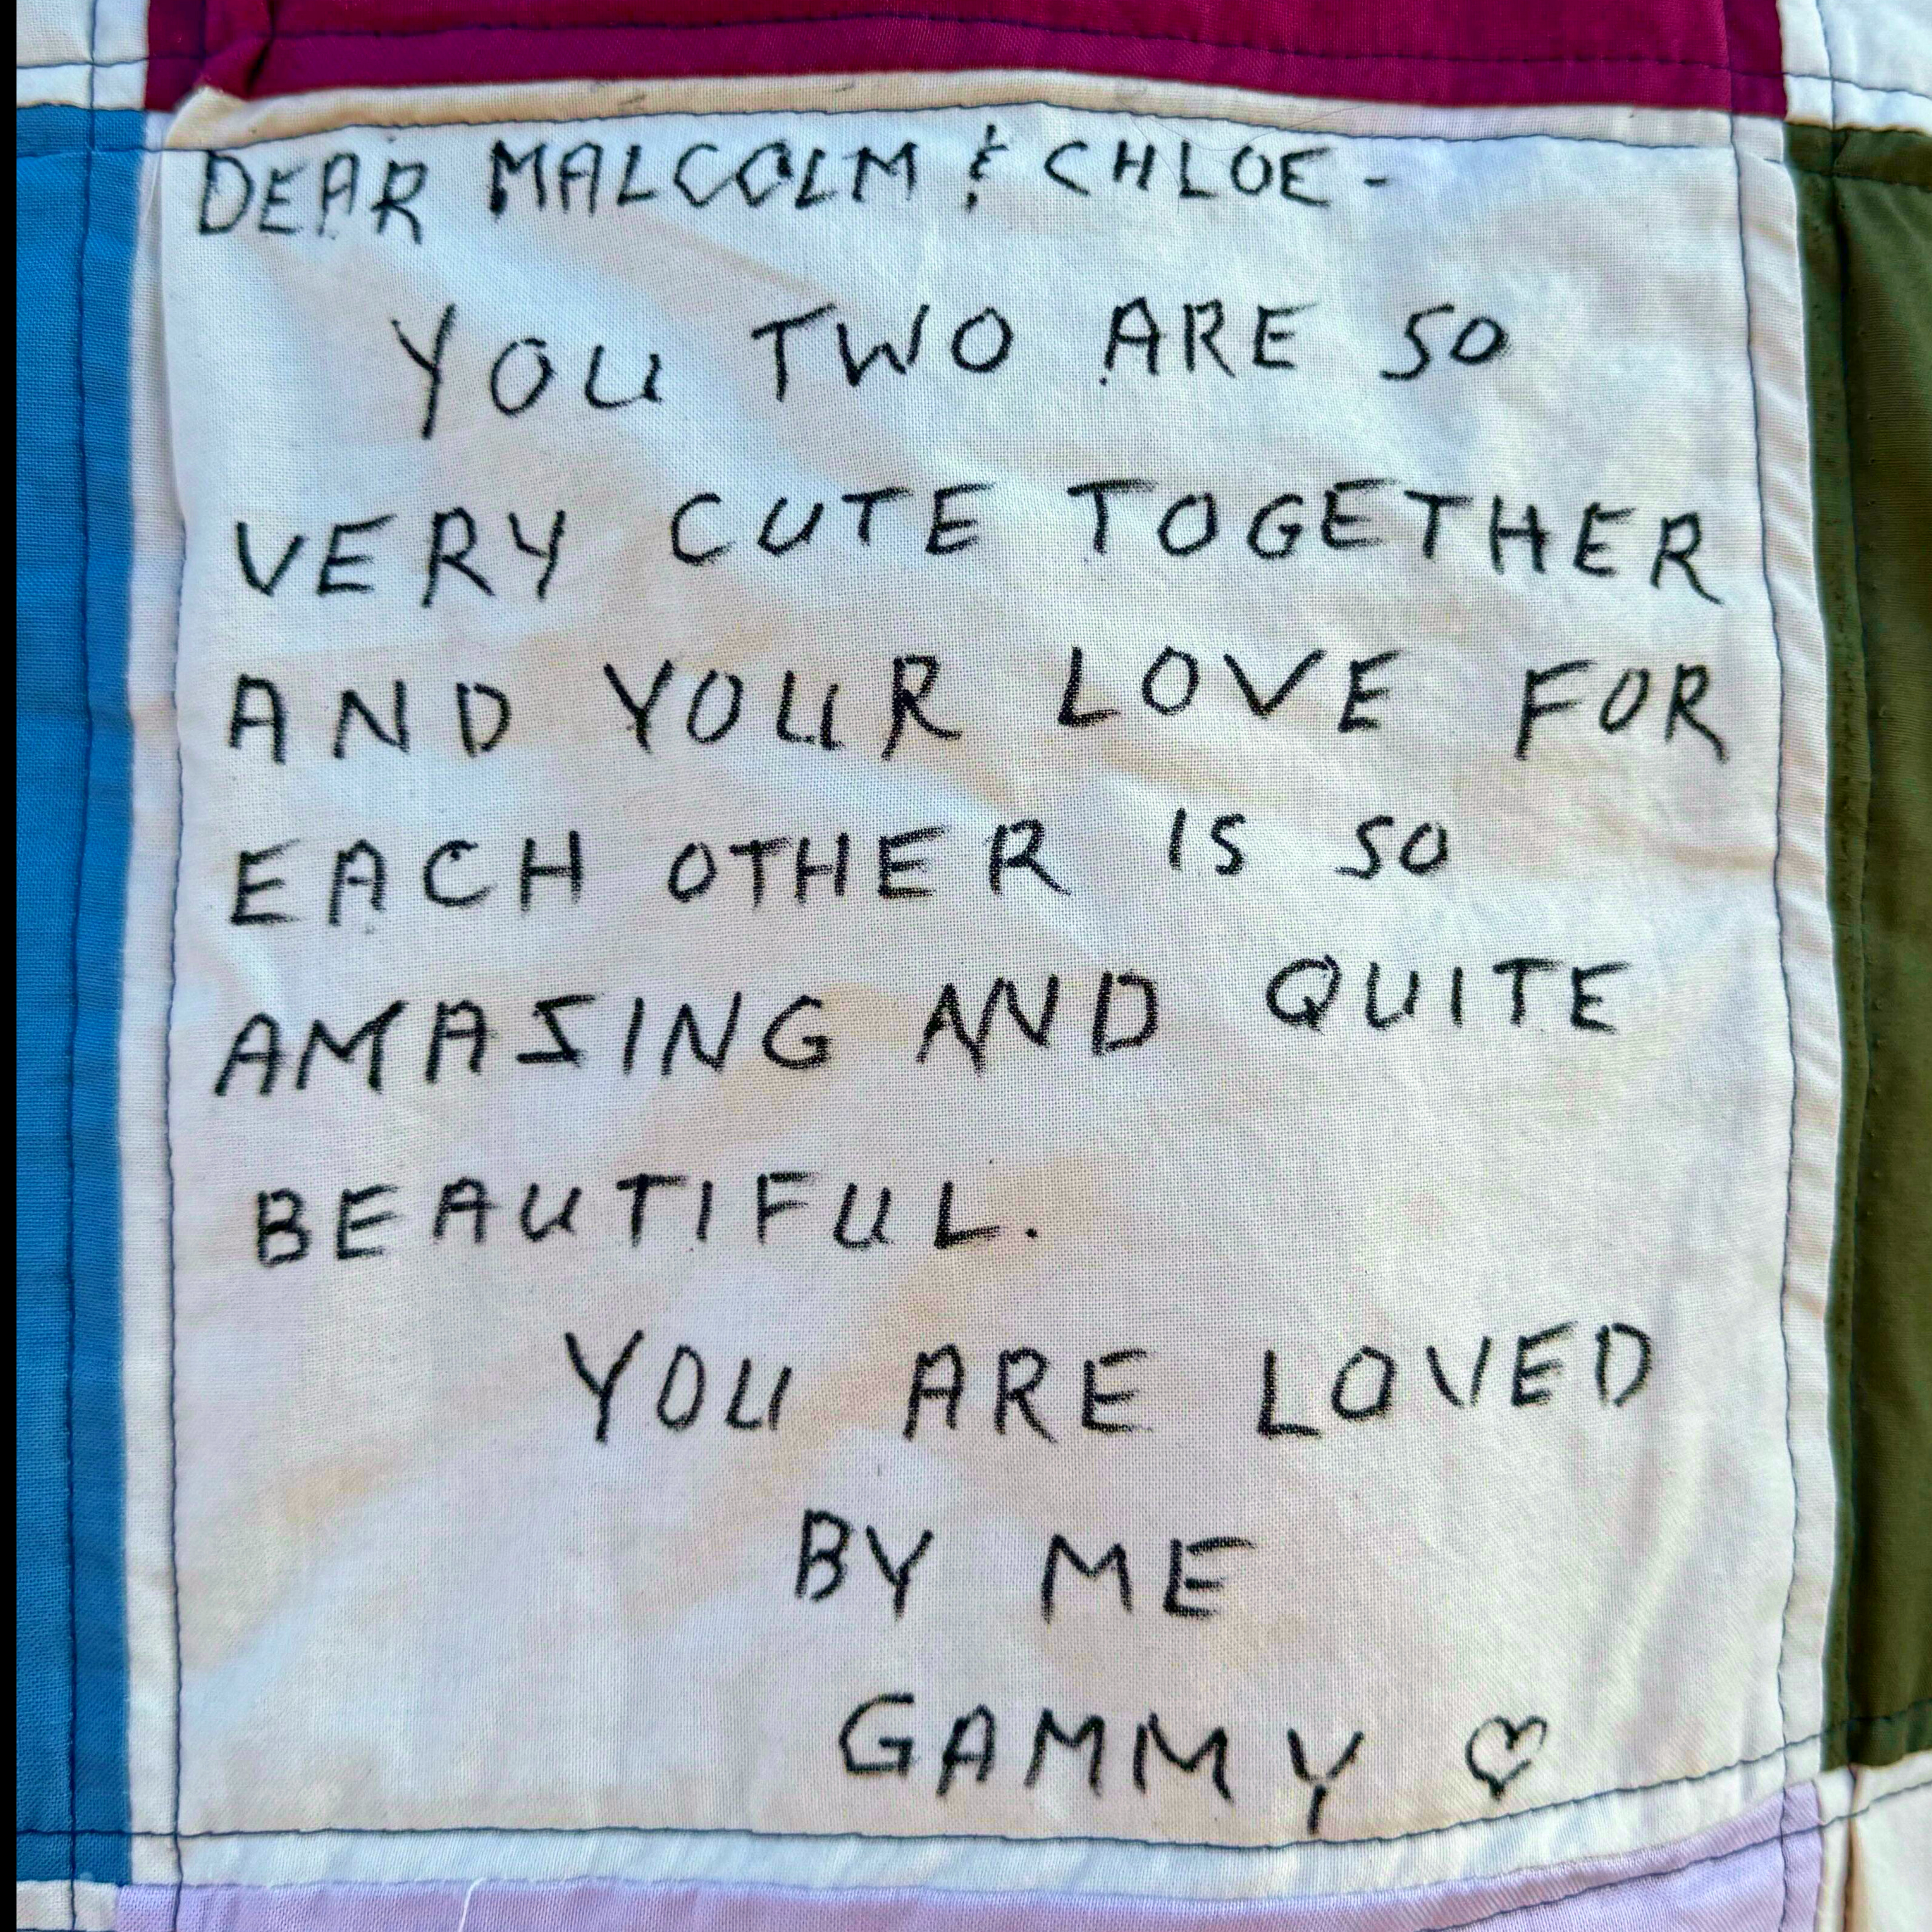 DEAR MALCOLM & CHLOE-
YOU TWO ARE SO
VERY CUTE TOGETHER
AND YOUR LOVE FOR
EACH OTHER IS SO
AMAZING AND QUITE
BEAUTIFUL.
YOU ARE LOVED
BY ME
GAMMY ♡